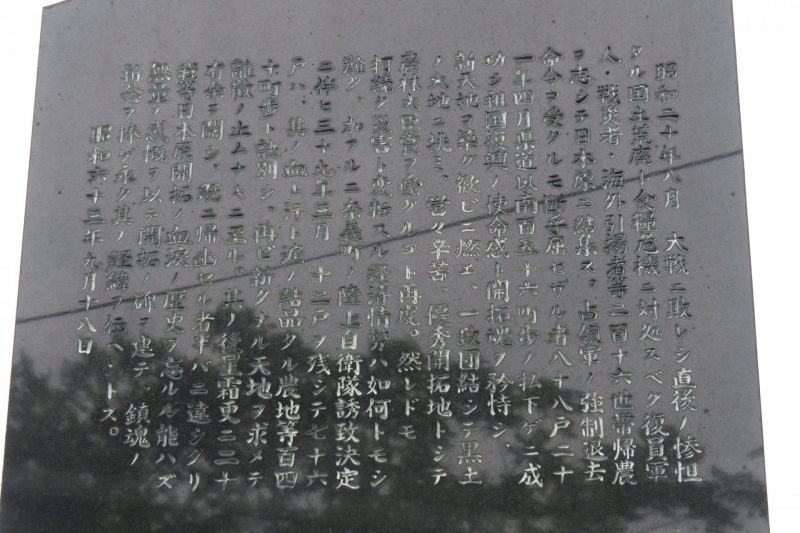 昭和二十年八月　大戦ニ敗レシ直後ノ惨怛
タル国土荒廃ト食糧危機ニ対処スベク復員軍
人・戦災者・海外引揚者等二百十六世帯帰農
ヲ志シテ日本原ニ結集ス。占領軍ノ強制退去
命令ヲ受クルモ断乎屈セザル者八十八戸二十
一年四月県道以南百五十六町歩ノ私下ゲニ成
功シ祖国復興ノ使命感ト開拓魂ヲ矜恃シ、
新天地ヲ築グ歓ビニ燃エ、一致団結シテ黒土
ノ大地ニ挑ミ、営々辛苦　優秀開拓地トシテ
農林大臣賞ヲ受グルコト再度、然レドモ
打続ク災害ト変転スル経済情勢ハ如何トモシ
難グ、加フルニ奈義町ノ陸上自衛隊誘致決定
ニ伴ヒ三十九年三月　十二戸ヲ残シテ七十六
戸ハ、其ノ血ト汗ト涙ノ結晶タル農地等百四
十町歩ト訣別シ、再ビ新タナル天地ヲ求メテ
離散ノ止ムナキニ至ル。其ノ後星霜更ニ二十
有余ニ閲シ、既ニ帰幽セル者半バニ達シグリ
我等日本原開拓ノ血涙ノ歴史ヲ忘ルル能ハズ
無量ノ感慨ヲ以テ開拓ノ碑ヲ建テ、鎮魂ノ
祈念ヲ捧ゲ永ク其ノ経緯ヲ伝ヘントス。
昭和六十二年九月十八日